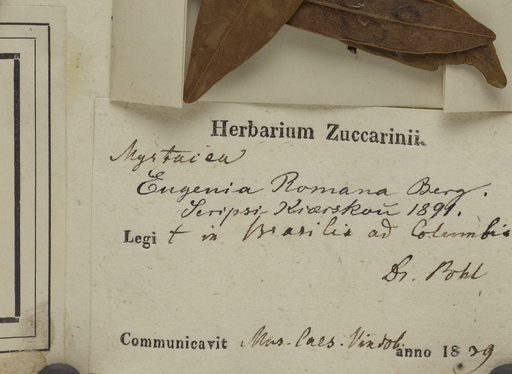 Herbarium Zuccarinii.
Myrtacea
Eugenia Romana Berg.
Scripsi Kiærskou 1891.
Legit in Brasilia ad Columbia
Dr. Pohl
Communicavit Mus. Caes. Vindob. anno 1839